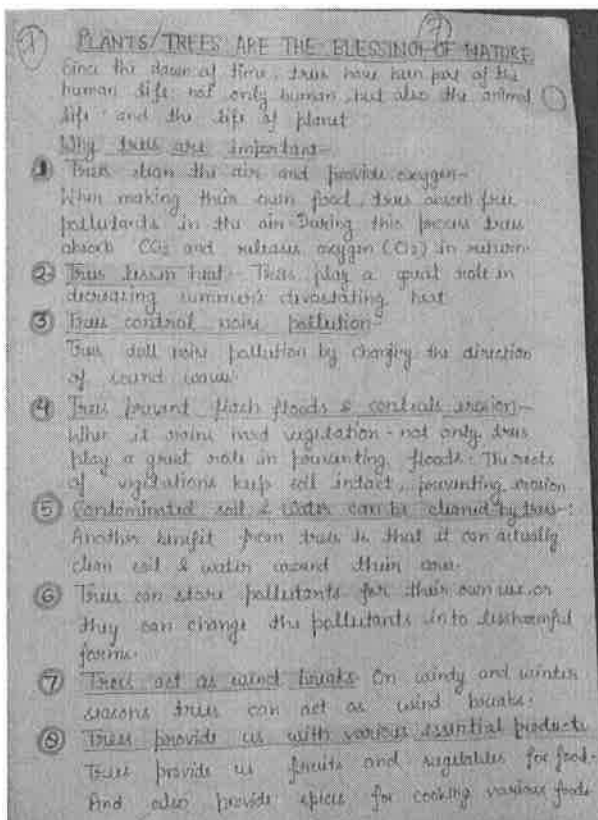 PLANTS/TREES ARE THE BLESSING OF NATURE
Since the dawn of time, trees have been part of the
human life not only human, but also the animal
life and the life of planet
Why trees are important-
1 Trees clean the air and provide oxygen-
When making their own food, trees absorb free
pollutants in the air. During this process trees
absorb CO2 and releases oxygen (O2) in return.
2 Trees lessen heat- Trees play a great role in
decreasing summer's devastating heat
3 Trees control noise pollution-
Trees dull noise pollution by changing the direction
of sound waves.
4 Trees prevent flash floods & controls erosion-
When it rains vegetation - not only trees
play a great role in preventing floods. The roots
of vegetations keep soil intact, preventing erosion
5 Contaminated soil & water can be cleaned by trees-:
Another benefit from trees is that it can actually
clean soil & water around their area.
6 Trees can store pollutants for their own use or
they can change the pollutants into less harmful
forms.
7 Trees act as wind breaks- On windy and winter
seasons trees can act as wind breaks.
8 Trees provide us with various essential products
Trees provide us fruits and vegetables for food.
And also provide spices for cooking various foods